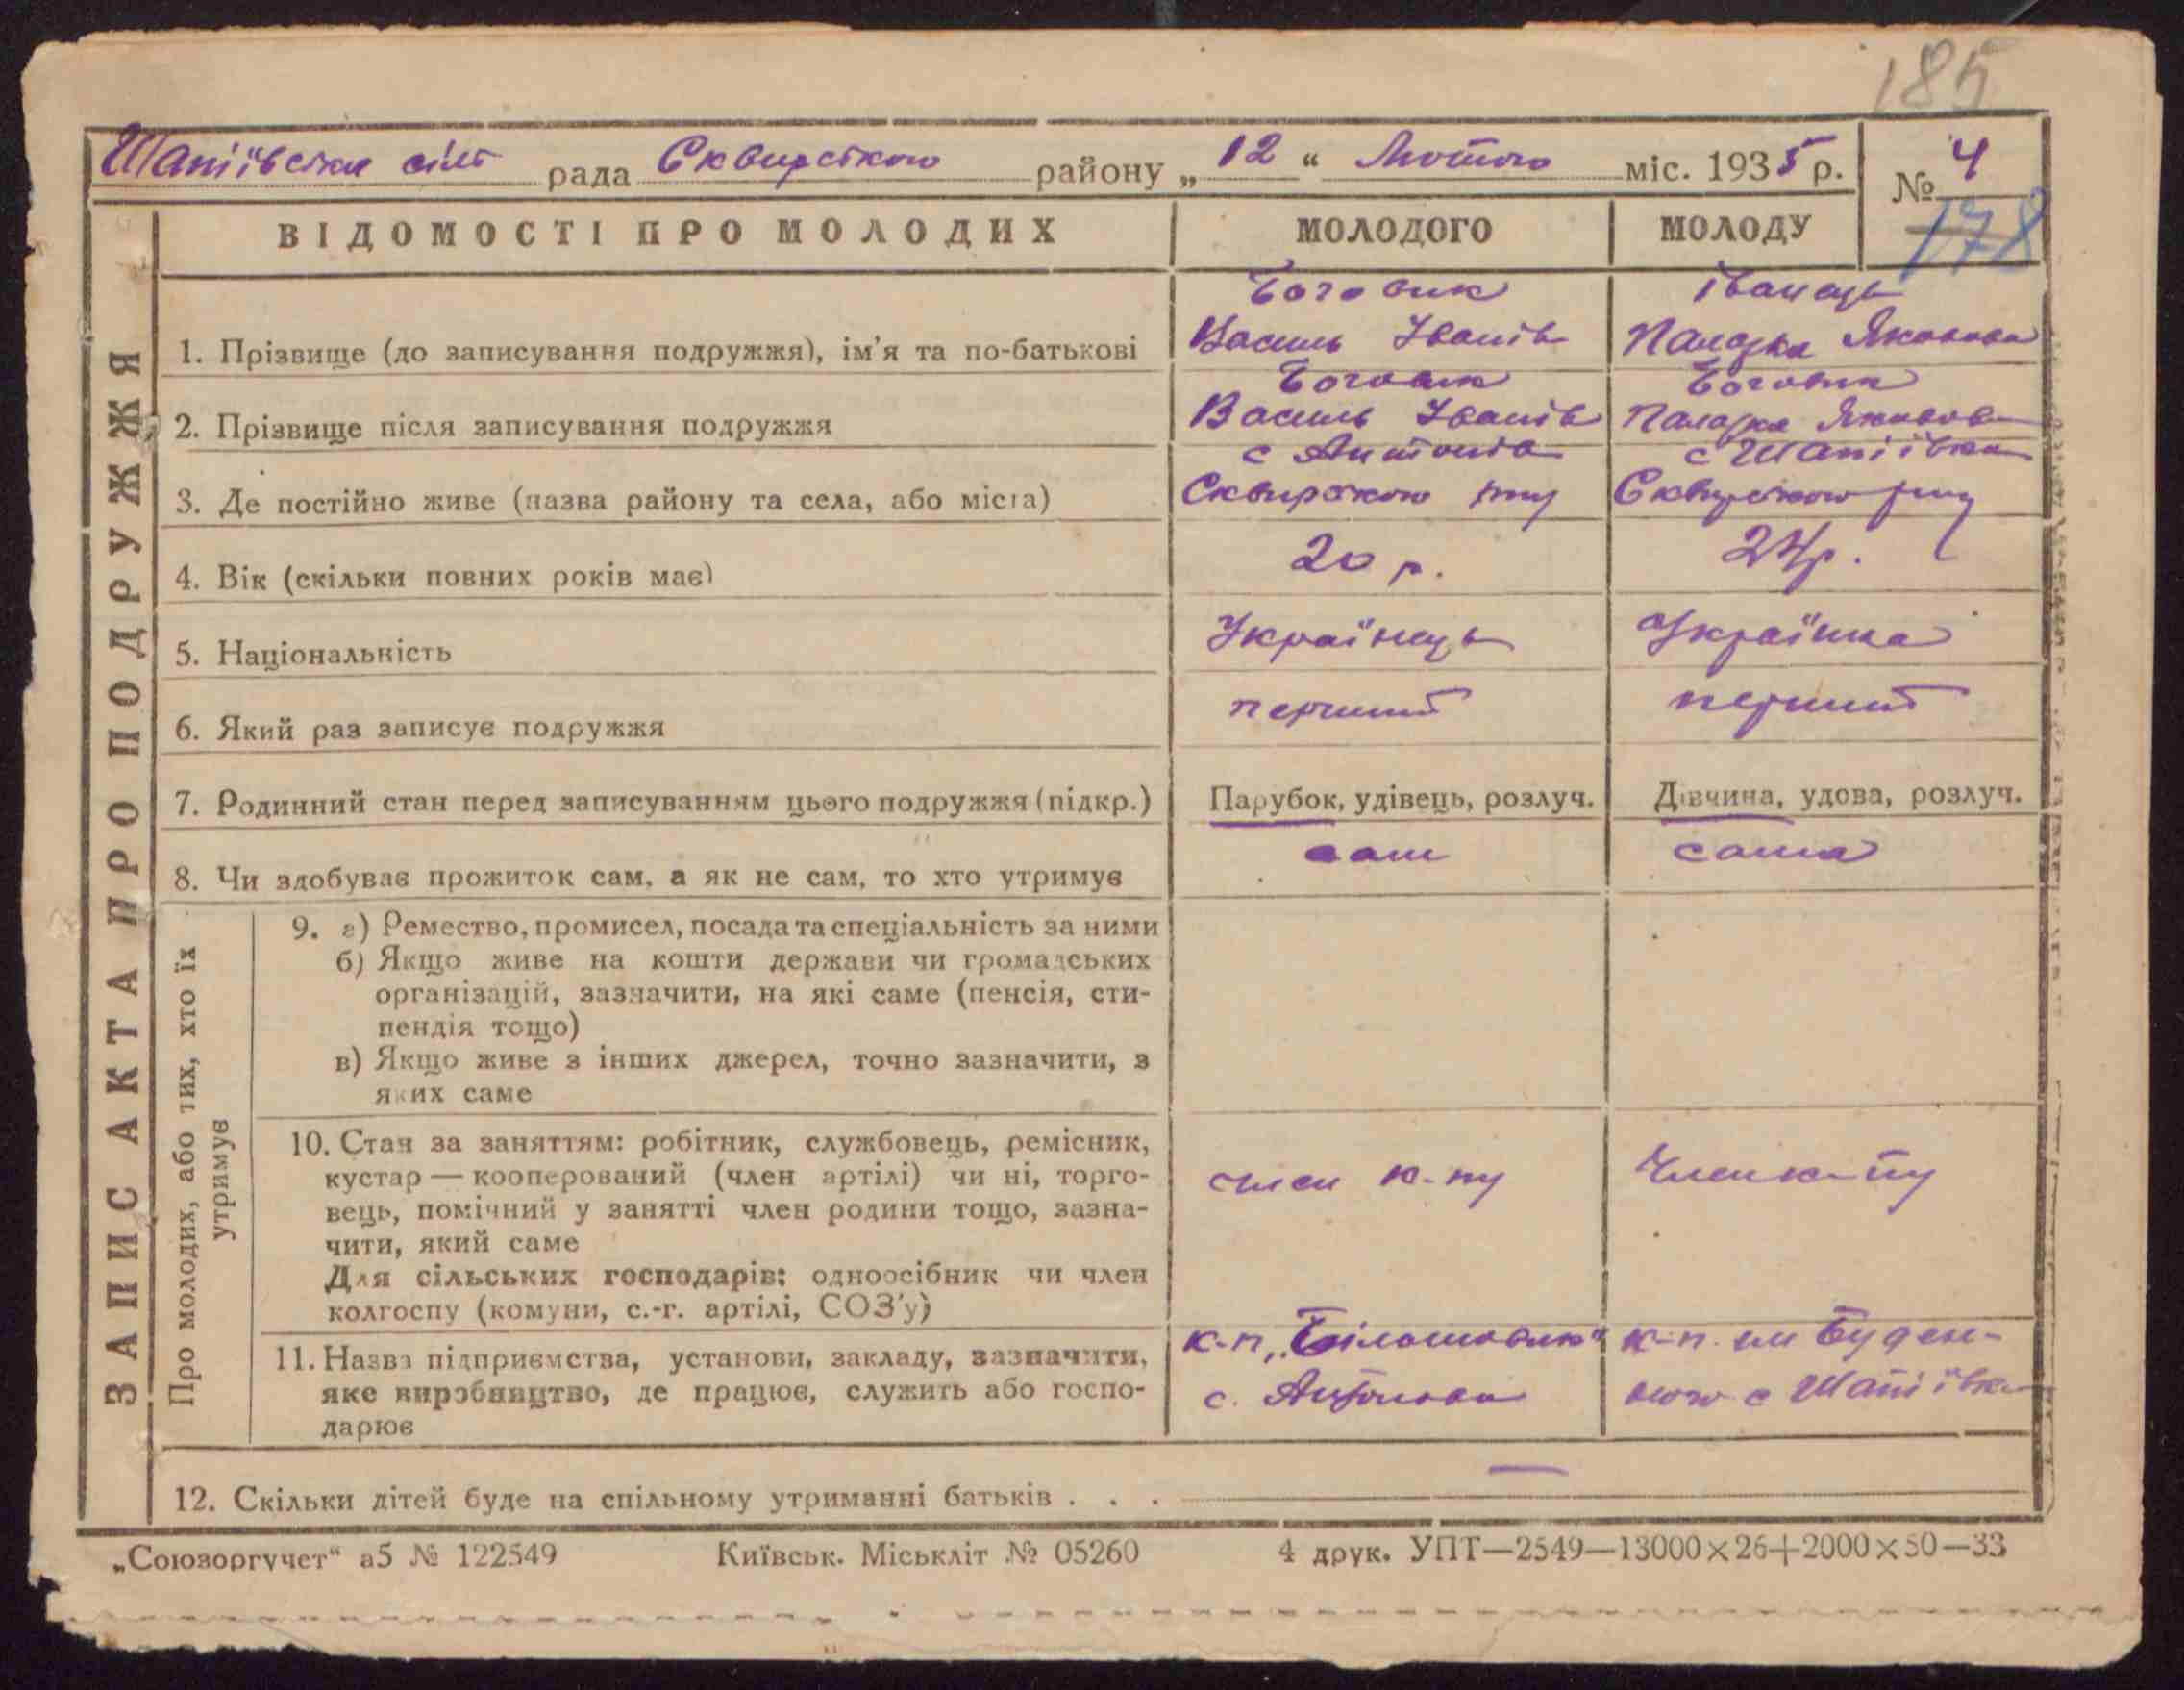 185
Шапіївська сіль рада Сквирського району „ 12 “ Лютого міс. 1935 р.
№ 4
178
ВІДОМОСТІ ПРО МОЛОДИХ
МОЛОДОГО
МОЛОДУ
ЗАПИС АКТА ПРО ПОДРУЖЖЯ
1. Прізвище (до записування подружжя), ім'я та по-батькові
Боговик
Василь Іванів
Іванець
Палажка Яковова
2. Прізвище після записування подружжя
Боговик
Василь Іванів
Боговик
Палажка Яковов
3. Де постійно живе (назва району та села, або міста)
с Антонів
Сквирського р-ну
с Шапіївка
Сквирського р-ну
4. Вік (скільки повних років має)
20 р.
24р.
5. Національність
Українець
Українка
6. Який раз записує подружжя
перший
перший
7. Родинний стан перед записуванням цього подружжя (підкр.)
Парубок, удівець, розлуч.
Дівчина, удова, розлуч.
8. Чи здобуває прожиток сам, а як не сам, то хто утримує
сам
сама
Про молодих, або тих, хто їх
утримує
9. а) Ремество, промисел, посада та спеціальність за ними
б) Якщо живе на кошти держави чи громадських
організацій, зазначити, на які саме (пенсія, сти-
пендія тощо)
в) Якщо живе з інших джерел, точно зазначити, з
яких саме
10. Стан за заняттям: робітник, службовець, ремісник,
кустар — кооперований (член артілі) чи ні, торго-
вець, помічний у занятті член родини тощо, зазна-
чити, який саме
Для сільських господарів: одноосібник чи член
колгоспу (комуни, с.-г. артілі, СОЗ'у)
член к-пу
Член к-пу
11. Назва підприємства, установи, закладу, зазначити,
яке виробництво, де працює, служить або госпо-
дарює
к-п
с. Антонова
к-п. ім Буден-
ного с Шапіївка
12. Скільки дітей буде на спільному утриманні батьків . . . —
„Союзоргучет“ а5 № 122549
Київськ. Міськліт № 05260
4 друк. УПТ—2549—13000×26+2000×50—33